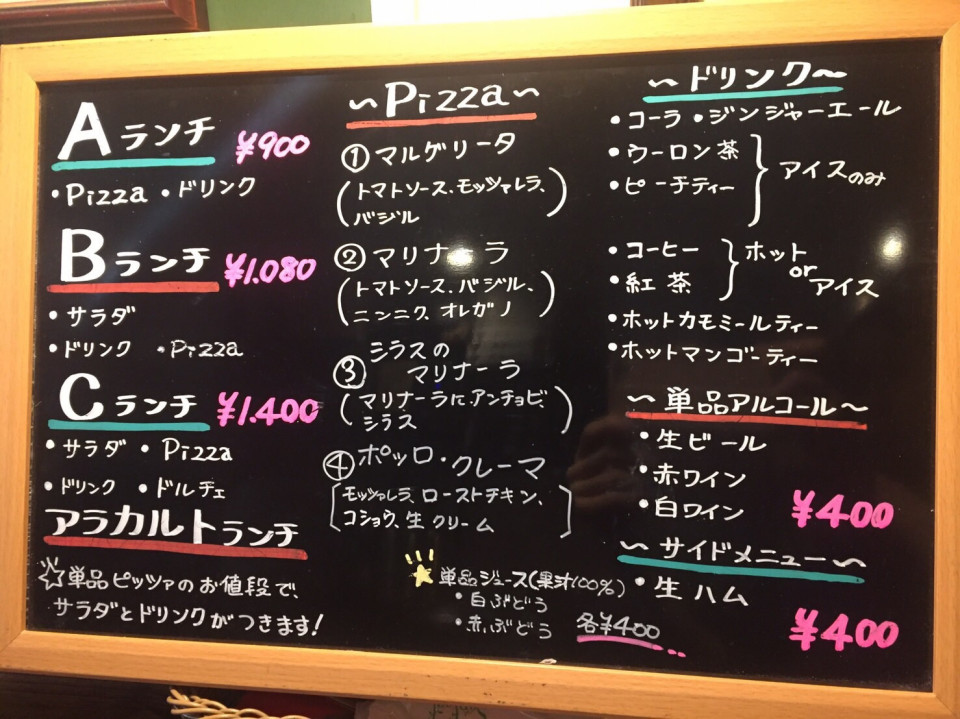 Aランチ ¥900
・Pizza ・ドリンク
Bランチ ¥1.080
・サラダ
・ドリンク ・Pizza
Cランチ ¥1.400
・サラダ ・Pizza
・ドリンク ・ドルチェ
アラカルトランチ
☆単品ピッツァのお値段で、
サラダとドリンクがつきます!
~Pizza~
①マルゲリータ
(トマトソース、モッツァレラ、
バジル)
②マリナーラ
(トマトソース、バジル、
ニンニク、オレガノ)
③シラスの
マリナーラ
(マリナーラに、アンチョビ、
シラス)
④ポッロ・クレーマ
[モッツァレラ、ローストチキン、
コショウ、生クリーム]
★単品ジュース(果汁100%)
・白ぶどう
・赤ぶどう 各¥400
~ドリンク~
・コーラ ・ジンジャーエール
・ウーロン茶
・ピーチティー
}アイスのみ
・コーヒー
・紅茶
}ホット
or
アイス
・ホットカモミールティー
・ホットマンゴーティー
~単品アルコール~
・生ビール
・赤ワイン
・白ワイン ¥400
~サイドメニュー~
・生ハム
¥400